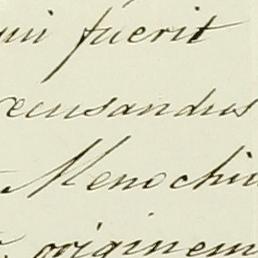 fuerit
recusandus
Menochiu
originem